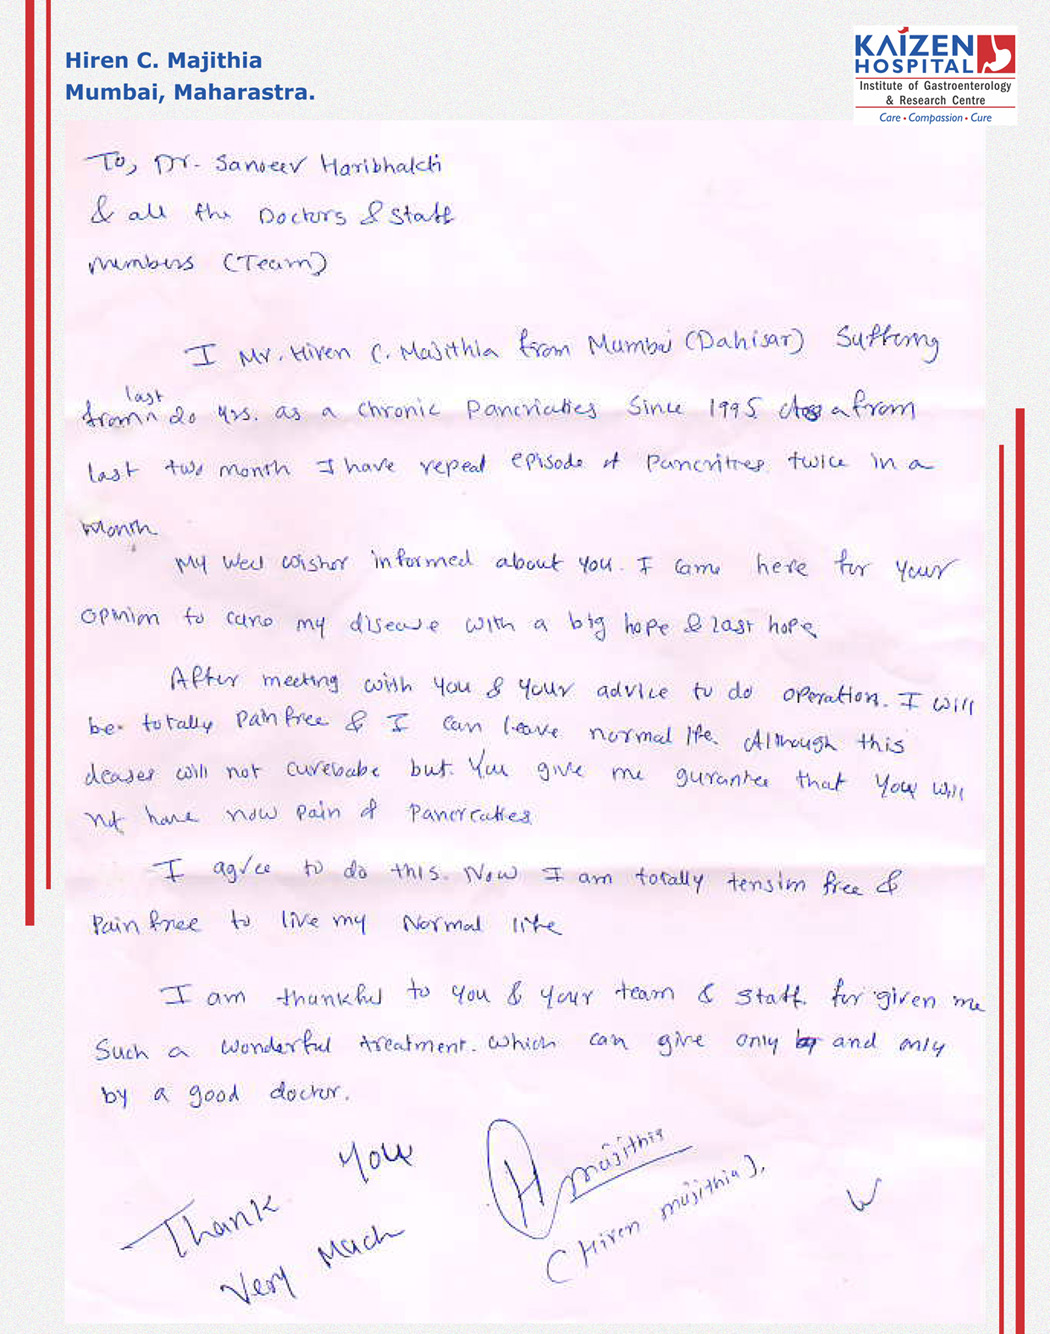 Hiren C. Majithia
Mumbai, Maharastra.
KAIZEN
HOSPITAL
Institute of Gastroenterology
& Research Centre
Care • Compassion • Cure
To, Dr. Sanjeev Haribhakti
& all the Doctors & Staff
members (Team)
I Mr. Hiren C. Majithia from Mumbai (Dahisar) Suffering
last
from ^ 20 yrs. as a chronic Pancriaties Since 1995 a from
last two month I have repeat episode of Pancrities twice in a
Month
My well wisher informed about you. I came here for your
opinion to cure my disease with a big hope & last hope
After meeting with you & your advice to do operation. I will
be totally Pain free & I can leave normal life. Although this
deases will not curebabe but you give me gurantee that you will
not have now pain of Pancreaties
I agree to do this. Now I am totally tension free &
Pain free to live my Normal life
I am thankful to you & your team & staff for given me
Such a wonderful treatment. which can give only by and only
by a good doctor.
Thank You
Very Much
H Majithia
(Hiren Majithia).